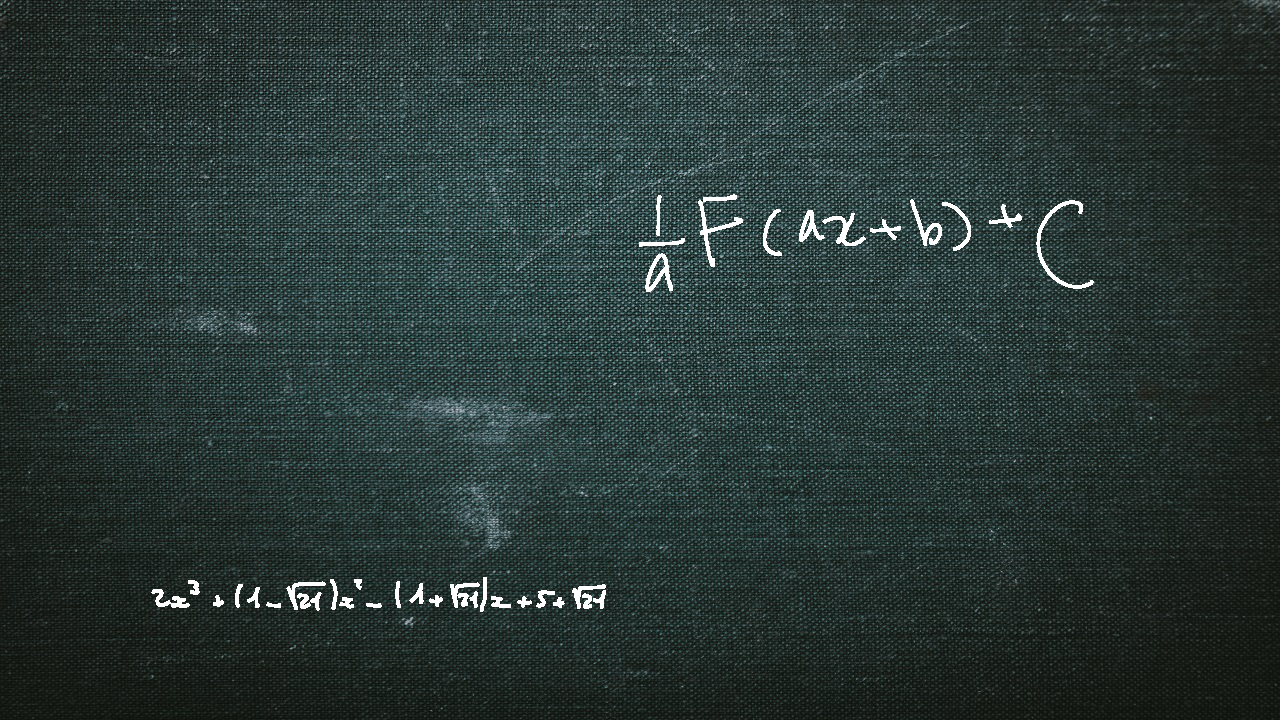 \frac{1}{a} F(ax+b) + C
2x^3 + (1-\sqrt{21})x^2 - (1+\sqrt{21})x + 5 + \sqrt{21}